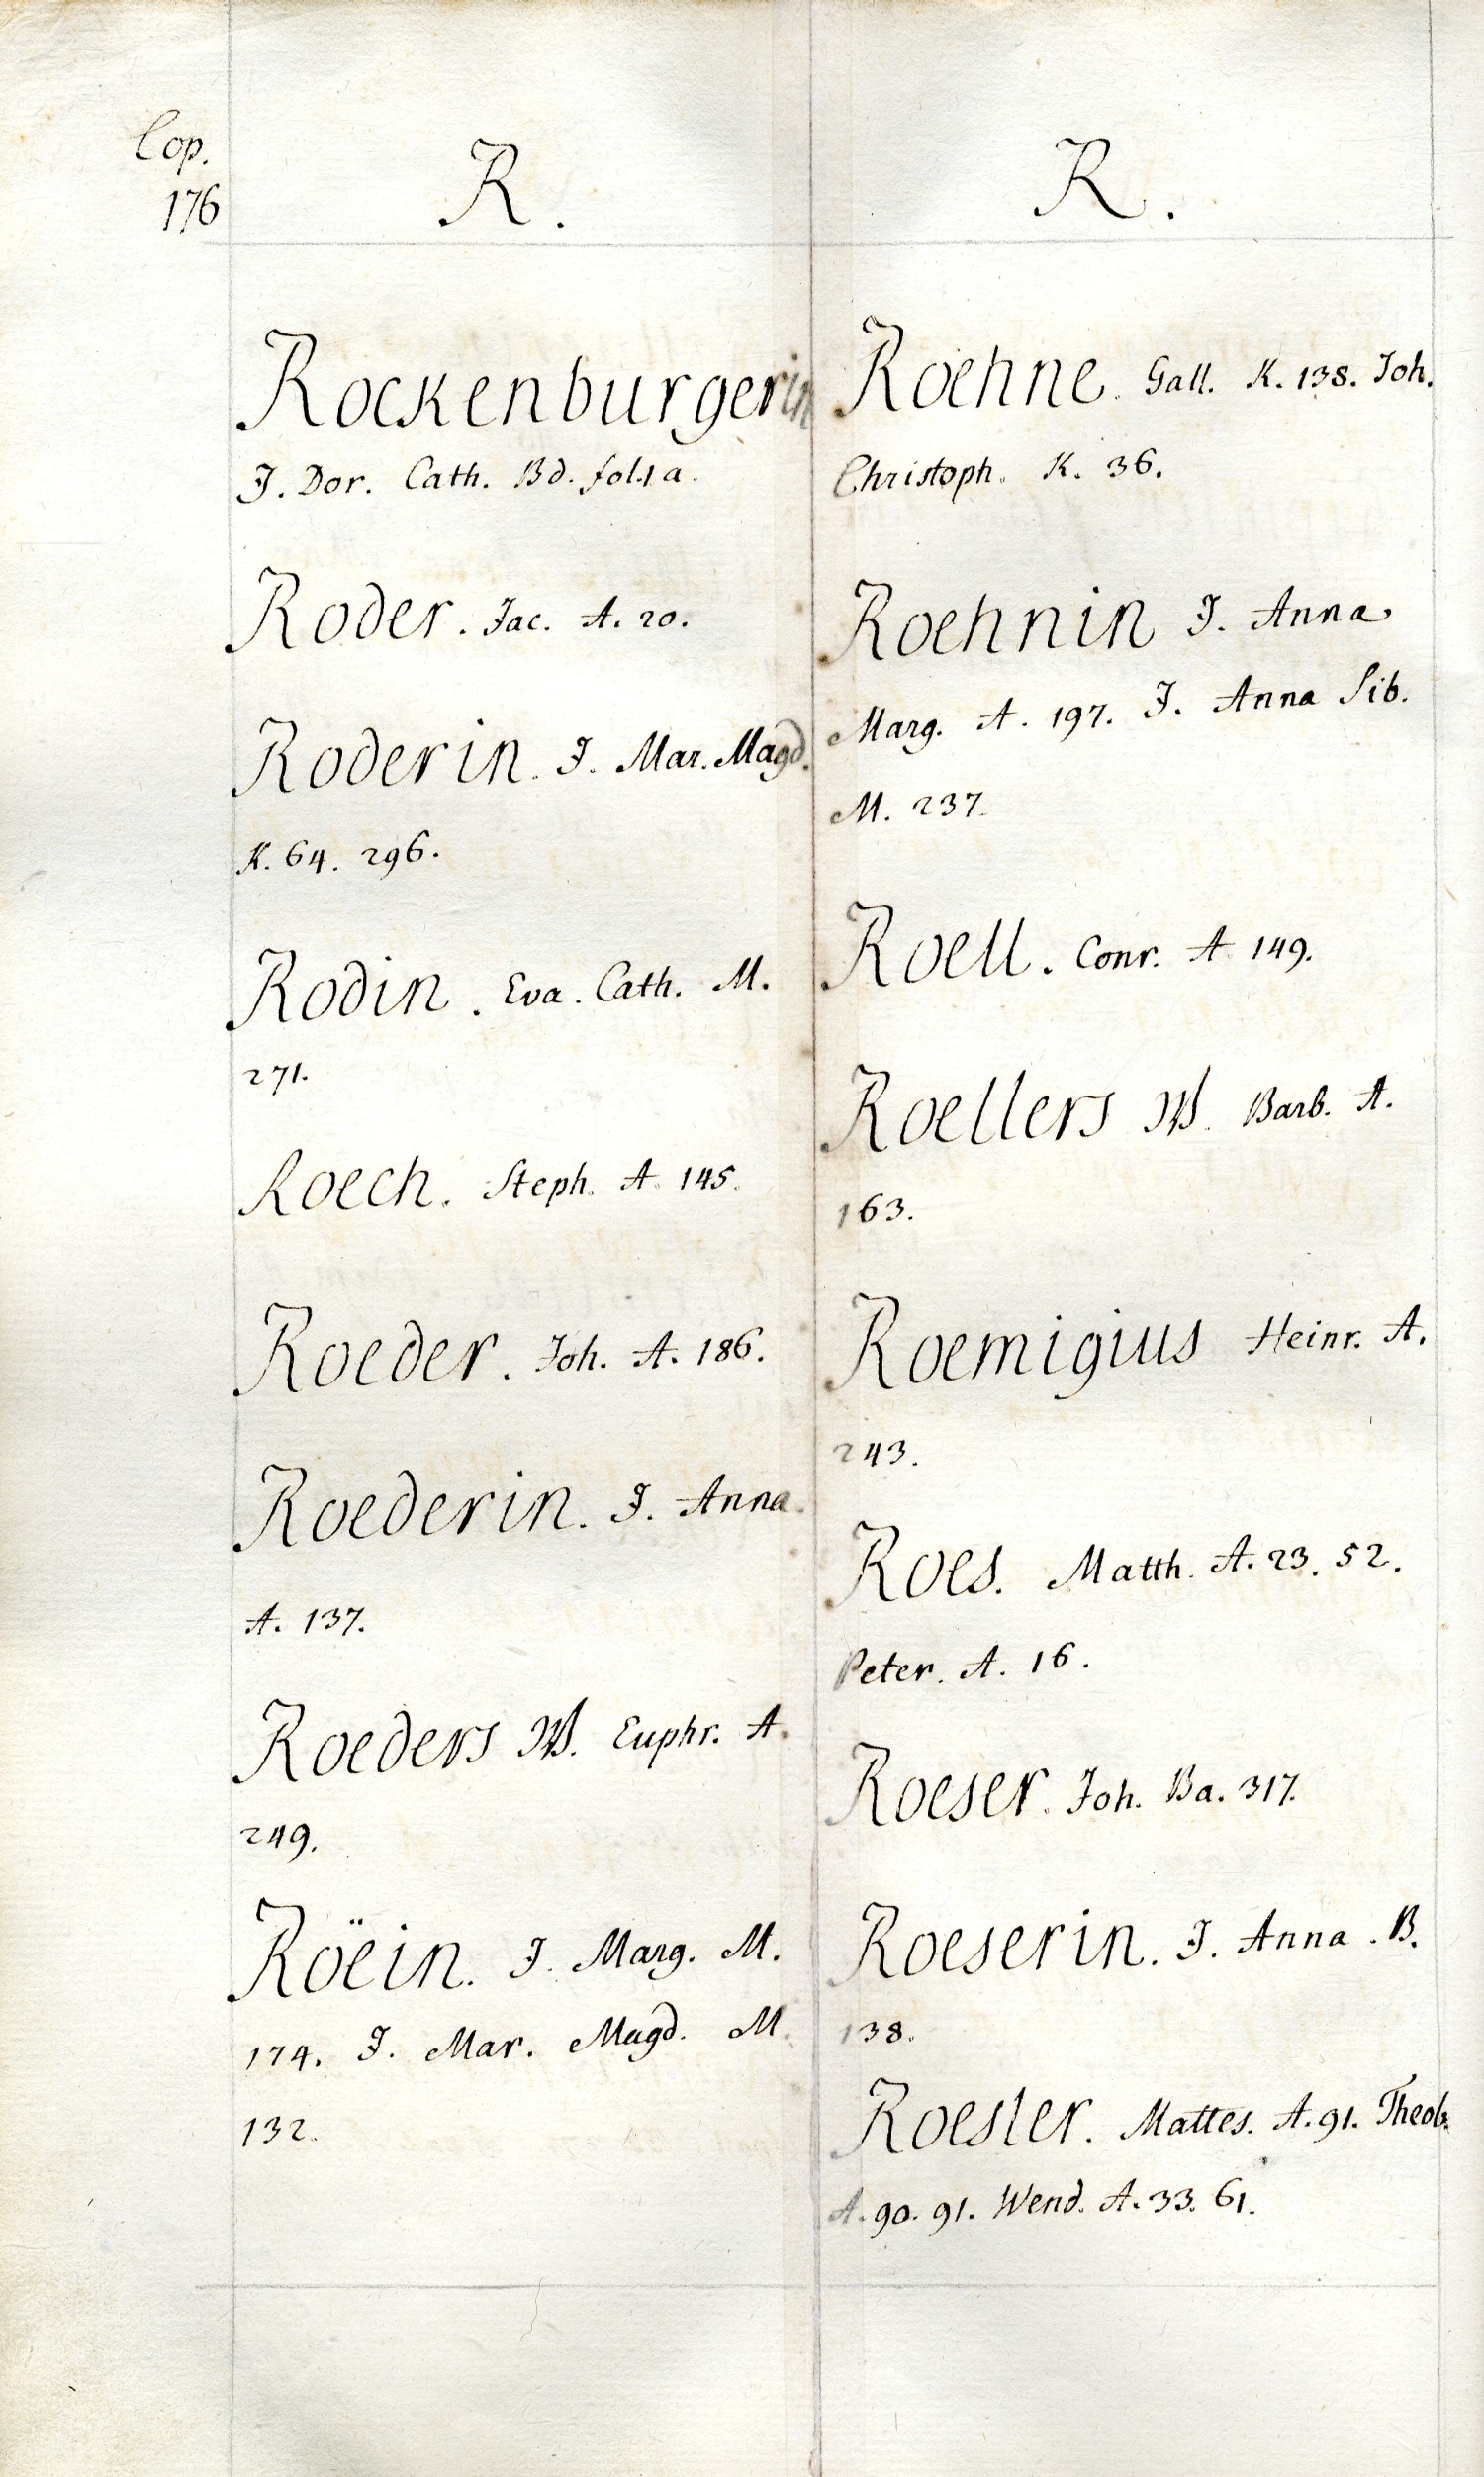 Cop.
176
R.
Rockenburgerin
J. Dor. Cath. Bd. fol. 1 a.
Roder. Jac. A. 20.
Roderin. J. Mar. Magd.
K. 64. 296.
Rodin. Eva. Cath. M.
271.
Roech. Steph. A. 145.
Roeder. Joh. A. 186.
Roederin. J. Anna.
A. 137.
Roeders W. Euphr. A.
249.
Röein. J. Marg. M.
174. J. Mar. Magd. M.
132.
R.
Roehne. Gall. K. 138. Joh.
Christoph. K. 36.
Roehnin J. Anna
Marg. A. 197. J. Anna Sib.
M. 237.
Roell. Conr. A. 149.
Roellers W. Barb. A.
163.
Roemigius Heinr. A.
243.
Roes. Matth. A. 23. 52.
Peter. A. 16.
Roeser. Joh. Ba. 317.
Roeserin. J. Anna. B.
138.
Roesler. Mattes. A. 91. Theob.
A. 90. 91. Wend. A. 33. 61.